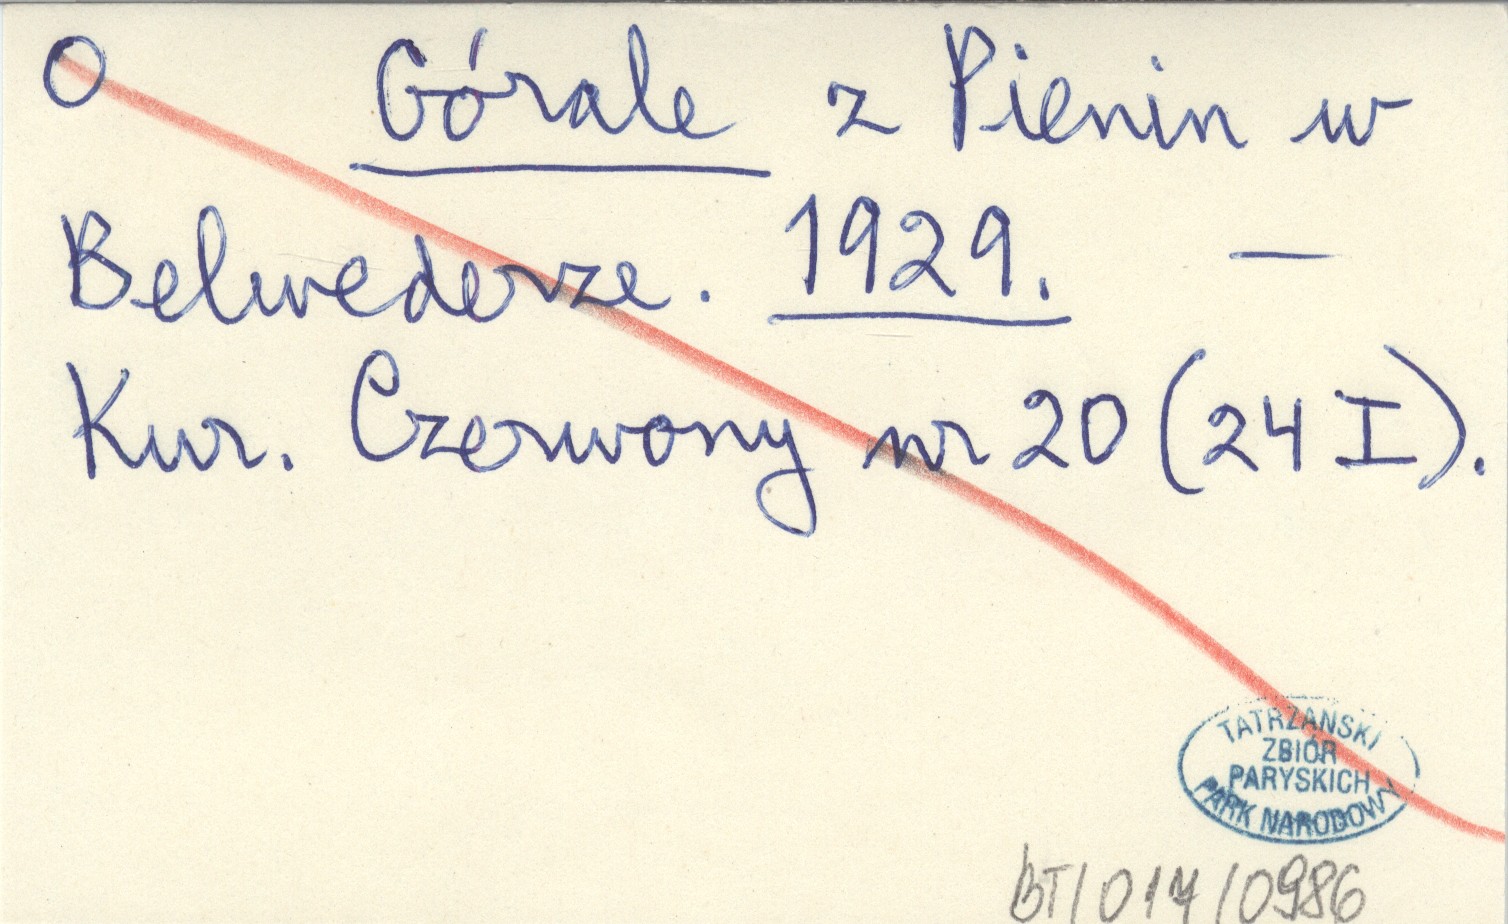 O Górale z Pienin w
Belwederze. 1929. —
Kur. Czerwony nr 20 (24 I).
TATRZAŃSKI
ZBIÓR
PARYSKICH
PARK NARODOWY
BT/017/0986